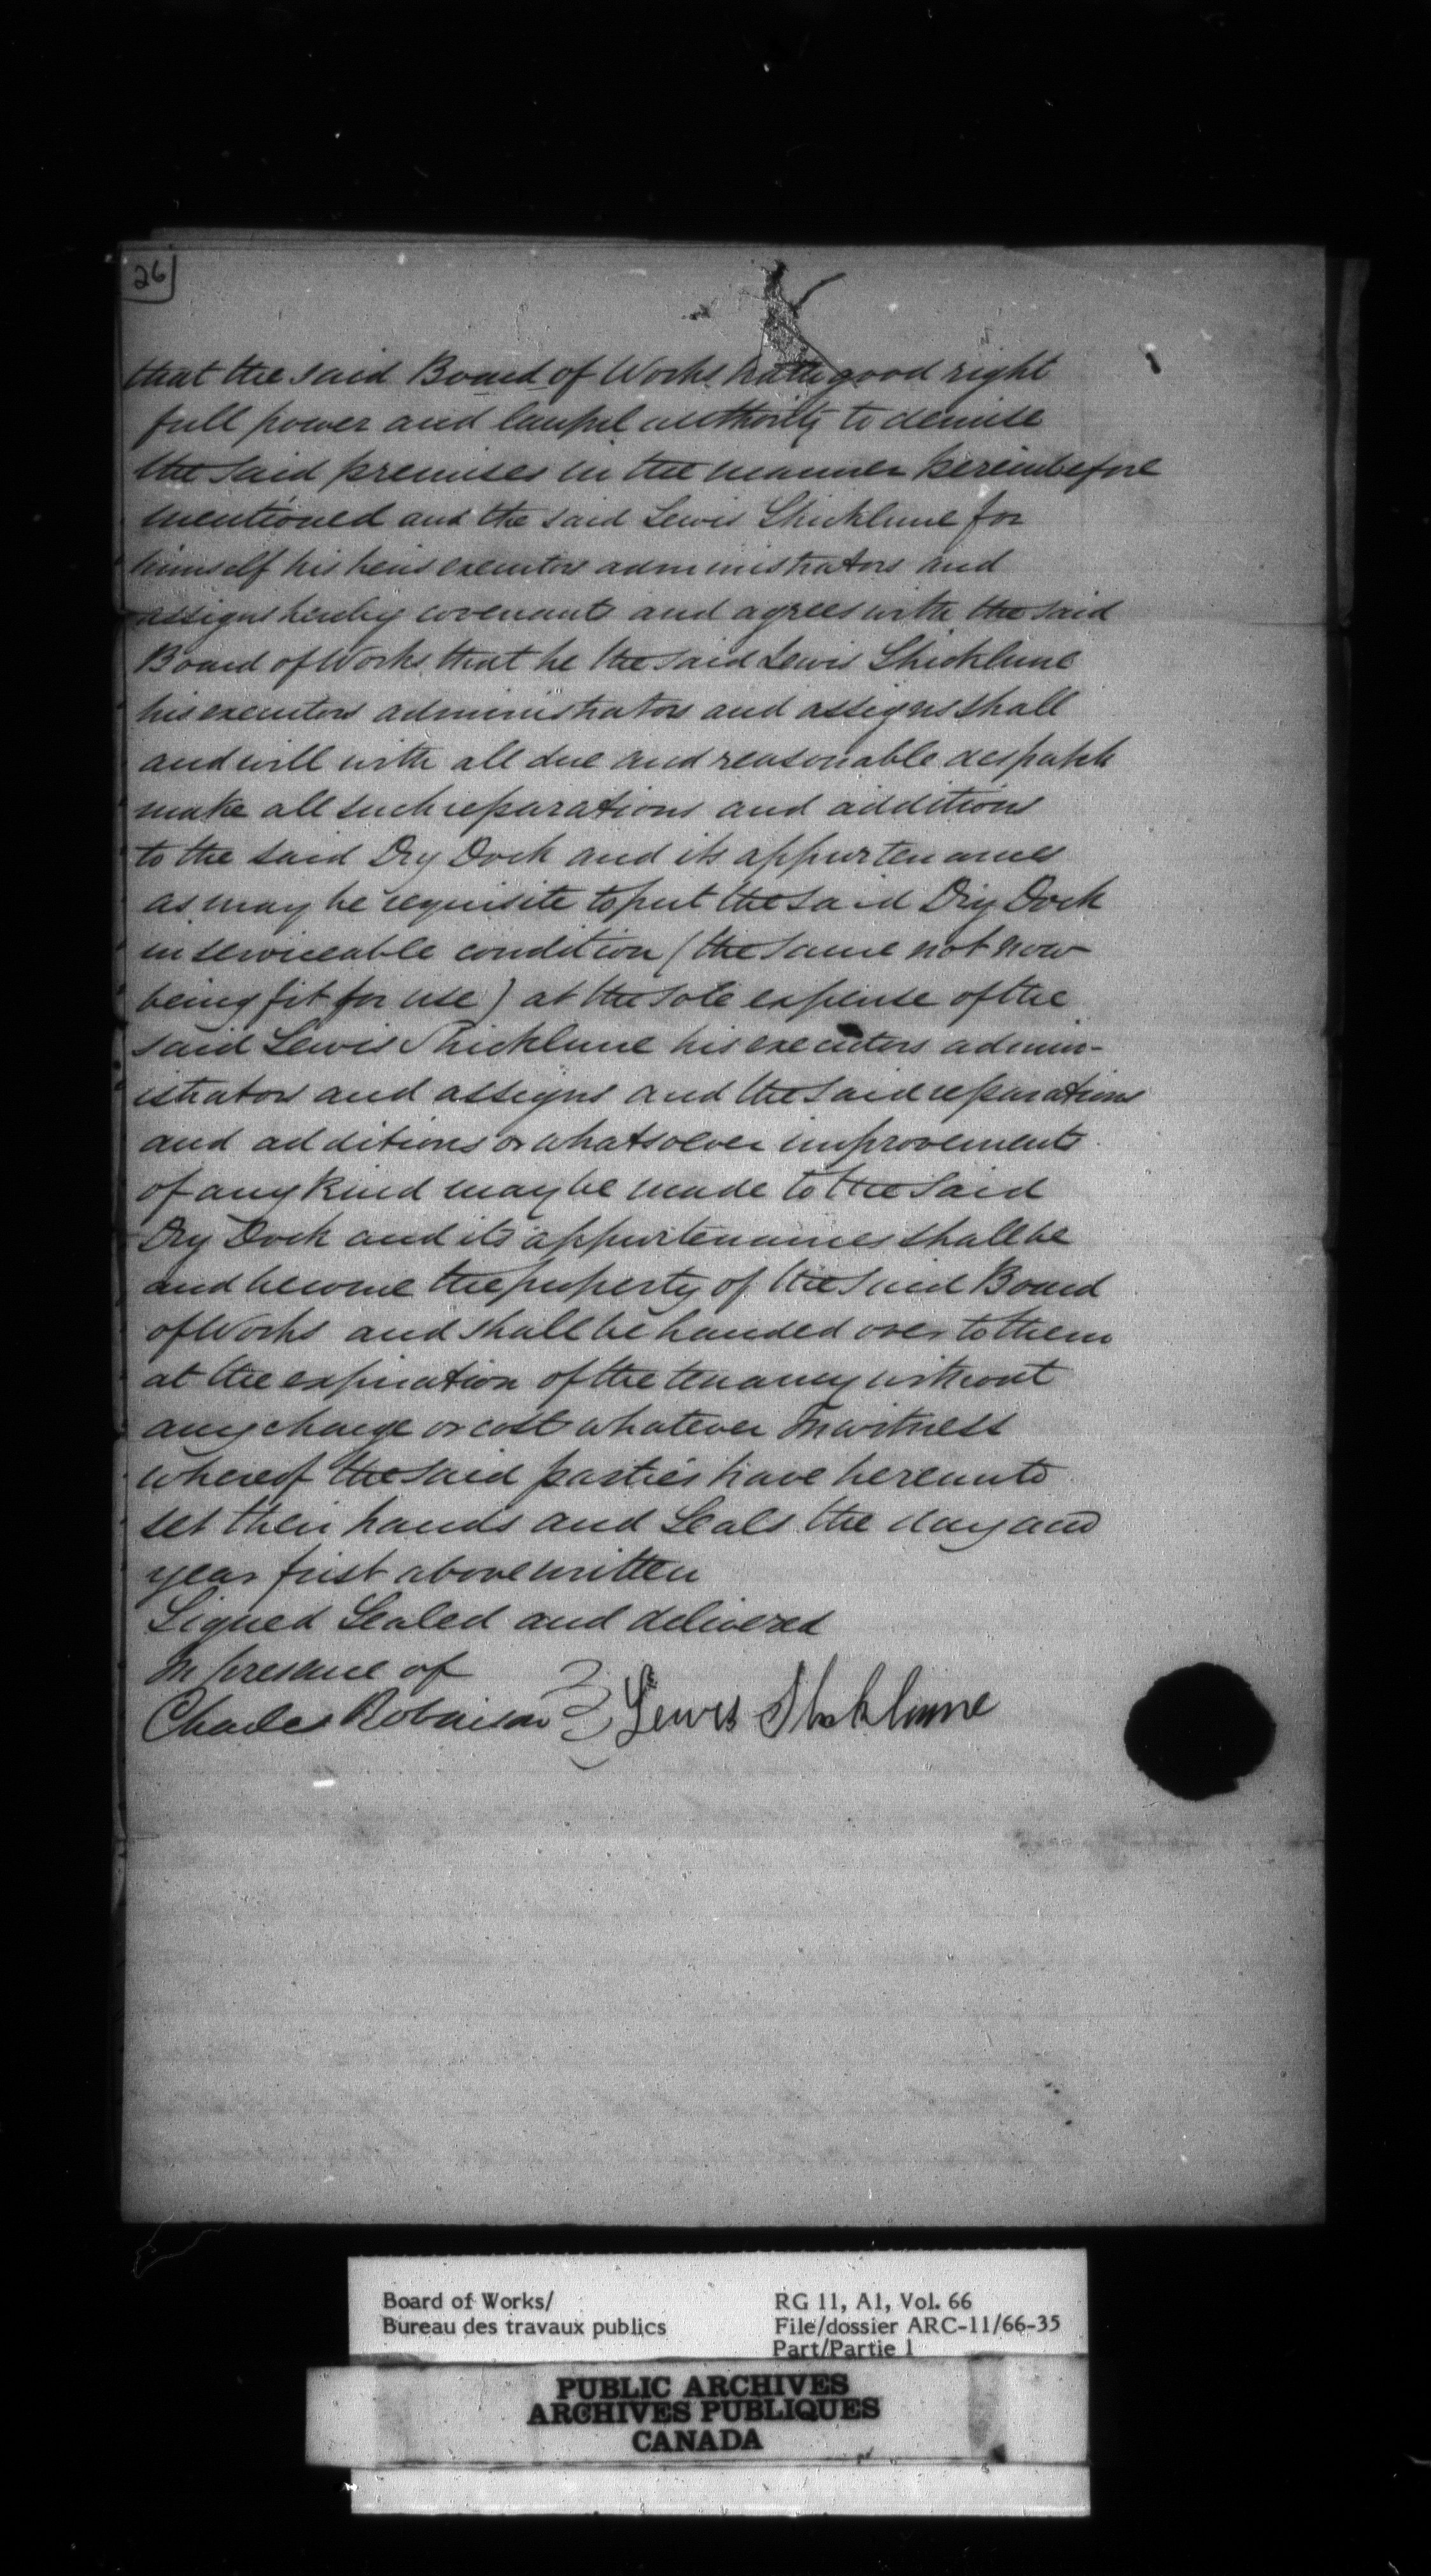 26
that the said Board of Works hath good right
full power and lawful authority to demise
the said premises in the manner hereinbefore
mentioned and the said Lewis Shicklune for
himself his heirs executors administrators and
assigns hereby covenants and agrees with the said
Board of Works that he the said Lewis Shicklune
his executors administrators and assigns shall
and will with all due and reasonable despatch
make all such reparations and additions
to the said Dry Dock and its appurtenances
as may be requisite to put the said Dry Dock
in serviceable condition (the same not now
being fit for use) at the sole expense of the
said Lewis Shicklune his executors admin-
istrators and assigns and the said reparations
and additions or whatsoever improvements
of any kind may be made to the said
Dry Dock and its appurtenances shall be
and become the property of the said Board
of Works and shall be handed over to them
at the expiration of the tenancy without
any charge or cost whatever In witness
whereof the said parties have hereunto
set their hands and Seals the day and
year first above written
Signed Sealed and delivered
In presence of
Charles Robinson } Lewis Shicklune
Board of Works/
Bureau des travaux publics
RG 11, A1, Vol. 66
File/dossier ARC-11/66-35
Part/Partie 1
PUBLIC ARCHIVES
ARCHIVES PUBLIQUES
CANADA